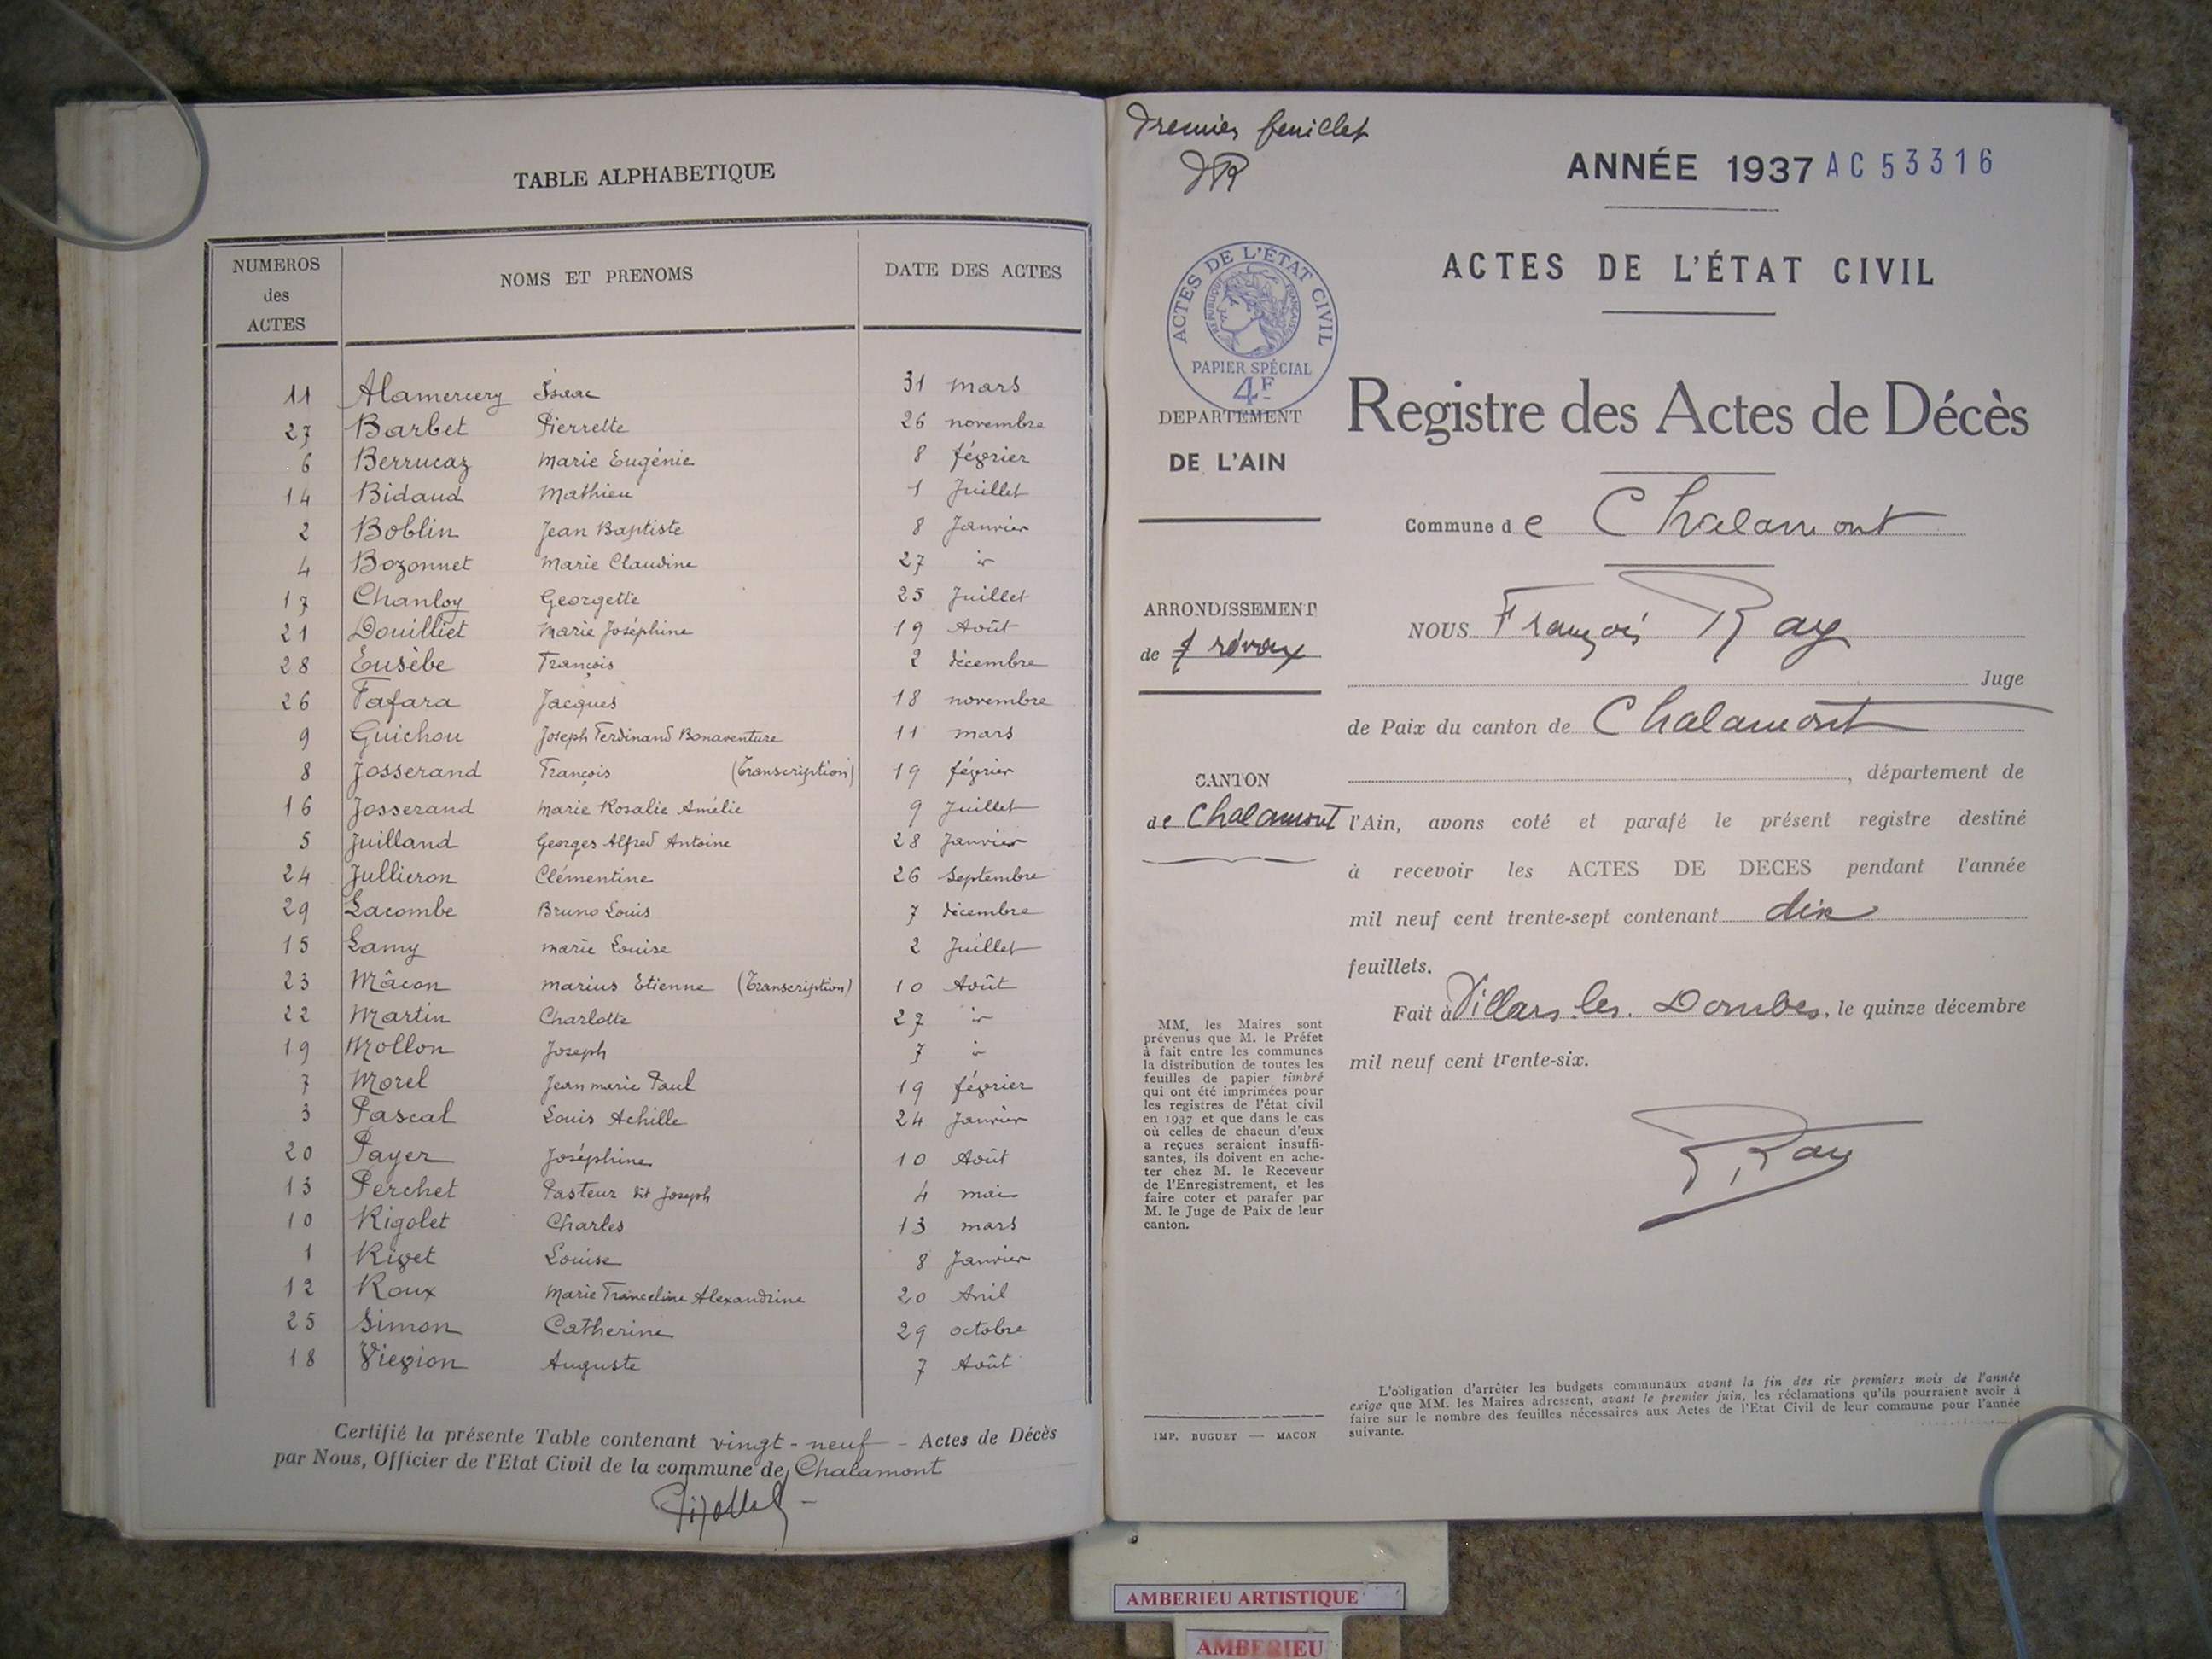 TABLE ALPHABETIQUE
NUMEROS des ACTES NOMS ET PRENOMS DATE DES ACTES
11 Alamercery Isaac 31 mars
27 Barbet Pierrette 26 novembre
6 Berrucaz Marie Eugénie 8 février
14 Bidaud Mathieu 1 Juillet
2 Boblin Jean Baptiste 8 Janvier
4 Bozonnet Marie Claudine 27 id
17 Chanloy Georgette 25 Juillet
21 Douilliet Marie Joséphine 19 Août
28 Eusèbe François 2 décembre
26 Fafara Jacques 18 novembre
9 Guichou Joseph Ferdinand Bonaventure 11 mars
8 Josserand François (Transcription) 19 février
16 Josserand Marie Rosalie Amélie 9 Juillet
5 Juilland Georges Alfred Antoine 28 Janvier
24 Jullieron Clémentine 26 Septembre
29 Lacombe Bruno Louis 7 décembre
15 Lamy marie Louise 2 Juillet
23 Mâcon marius Etienne (Transcription) 10 Août
22 Martin Charlotte 27 id
19 Mollon Joseph 7 id
7 Morel Jean marie Paul 19 février
3 Pascal Louis Achille 24 Janvier
20 Payer Joséphine 10 Août
13 Perchet Pasteur dit Joseph 4 mai
10 Rigolet Charles 13 mars
1 Rivet Louise 8 Janvier
12 Roux Marie Franceline Alexandrine 20 Avril
25 Simon Catherine 29 octobre
18 Viegion Auguste 7 Août
Certifié la présente Table contenant vingt-neuf - Actes de Décès
par Nous, Officier de l'Etat Civil de la commune de Chalamont
Premier feuillet
ANNÉE 1937 AC 53316
ACTES DE L'ÉTAT CIVIL
ACTES DE L'ÉTAT CIVIL
REPUBLIQUE FRANÇAISE
PAPIER SPÉCIAL
4F
DEPARTEMENT
DE L'AIN
ARRONDISSEMENT
de Trévoux
CANTON
de Chalamont
MM. les Maires sont
prévenus que M. le Préfet
à fait entre les communes
la distribution de toutes les
feuilles de papier timbré
qui ont été imprimées pour
les registres de l'état civil
en 1937 et que dans le cas
où celles de chacun d'eux
a reçues seraient insuffi-
santes, ils doivent en ache-
ter chez M. le Receveur
de l'Enregistrement, et les
faire coter et parafer par
M. le Juge de Paix de leur
canton.
IMP. BUGUET — MACON
Registre des Actes de Décès
Commune de Chalamont
NOUS François Ray
Juge
de Paix du canton de Chalamont
, département de
l'Ain, avons coté et parafé le présent registre destiné
à recevoir les ACTES DE DECES pendant l'année
mil neuf cent trente-sept contenant dix
feuillets.
Fait à Villars les Dombes, le quinze décembre
mil neuf cent trente-six.
Ray
L'obligation d'arrêter les budgets communaux avant la fin des six premiers mois de l'année
exige que MM. les Maires adressent, avant le premier juin, les réclamations qu'ils pourraient avoir à
faire sur le nombre des feuilles nécessaires aux Actes de l'Etat Civil de leur commune pour l'année
suivante.
AMBERIEU ARTISTIQUE
AMBERIEU